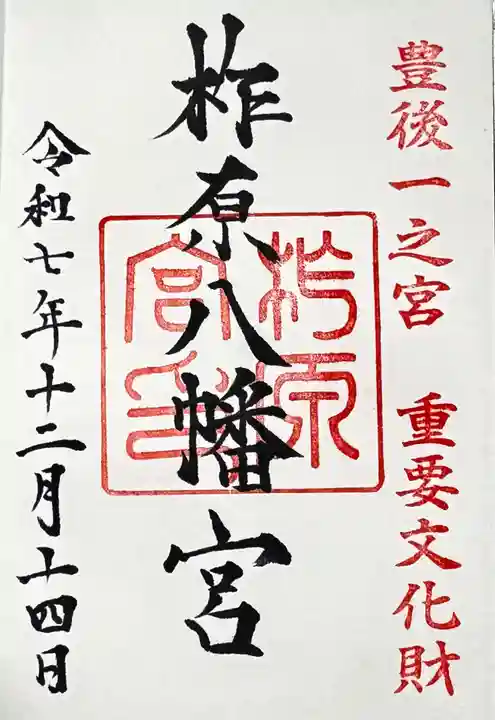 豊後一之宮 重要文化財
柞原八幡宮
令和七年十二月十四日